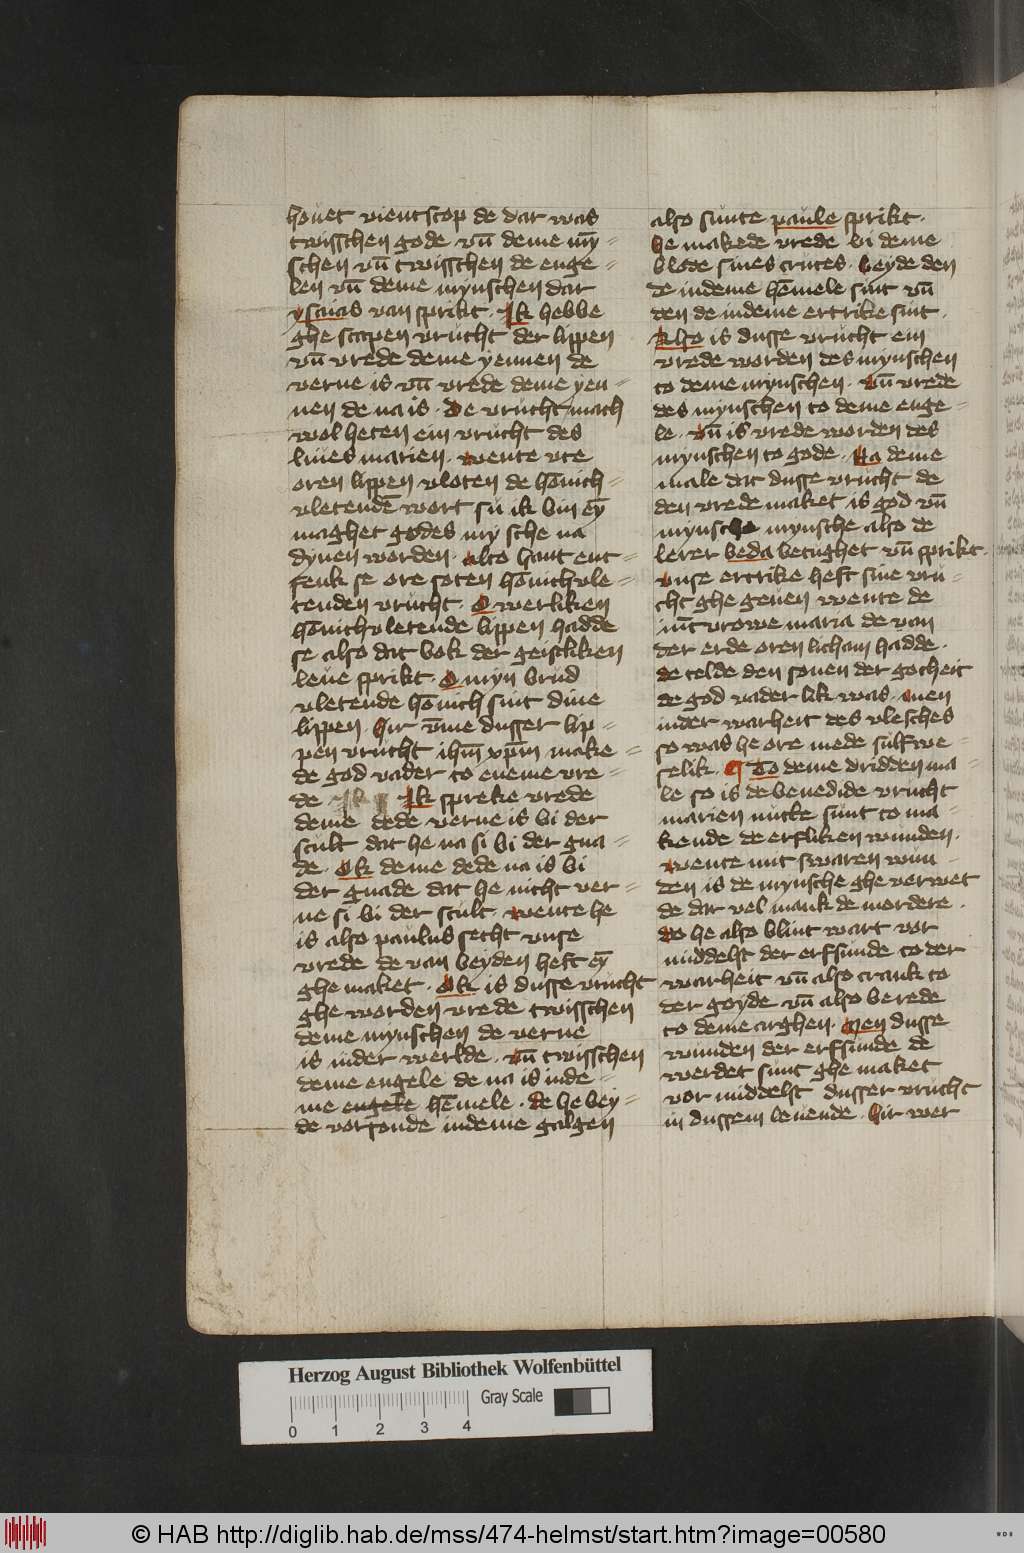 houet vientscop de dar was
twisschen gode vn̄ deme my̅=
schen vn̄ twisschen de enge=
len vn̄ deme mynschen dar
ysaias van sprikt. Ik hebbe
ghe scapen vrucht der lippen
vn̄ vrede deme yennen de
verne is vn̄ vrede deme yen=
nen de na is. De vrucht mach
wol heten ein vrucht des
liues marien. wente vte
oren lippen vloten de ho̅nich=
vletende̅ wort su ik bin ey̅
maghet godes my sche na
dynen worden. alto hant ent=
fenk se ore soten ho̅nichvle=
tenden vrucht. O werliken
ho̅nichvletende lippen hadde
se also dat bok der geistliken
leue sprikt. O myn brud
vletende ho̅nich sint dine
lippen. Hir v̅me dusser lip=
pen vrucht ihm̅ xpm̅ make=
de god vader to eneme vre=
de Ik spreke vrede
deme dede verne is bi der
scult dat he na si bi der gna=
de. Ok deme dede na is bi
der gnade dat he nicht ver=
ne si bi der scult. wente he
is also paulus secht vnse
vrede de van beyden heft ey̅
ghe maket. Ok is dusse vrucht
ghe worden vrede twisschen
deme mynschen de verne
is inder werlde. vn̄ twisschen
deme engele de na is inde=
me engele he̅mele. de he bey=
de vorsonde indeme galgen
also sunte paule sprikt.
he makede vrede bi deme
blode sines cruces. beyde den
de indeme he̅mele sint vn̄
den de indeme ertrike sint.
Also is dusse vrucht ein
vrede worden des mynschen
to deme mynschen. vn̄ vrede
des mynschen to deme enge=
le. vn̄ is vrede worden des
mynschen to gode. Na deme
male dat dusse vrucht de
den vrede maket is god vn̄
mynsche mynsche also de
lerer beda betughet vn̄ sprikt.
vnse ertrike heft sine vru=
cht ghe geuen wente de
iu̅cvrowe maria de van
der erde oren licham hadde.
de telde den sonen der gotheit
de god vader lik was. men
inder warheit des vlesches
so was he ore mede sulfwe=
selik. ¶ To deme dridden ma=
le so is de benedide vrucht
marien nutte sunt to ma=
kende de erfliken wunden.
wente mit swaren wun=
den is de mynsche ghe verwet
de dar vel mank de mordere.
do he also blint wart vor
middelst der erfsunde to der
warheit vn̄ also crank to
der goyde vn̄ also berede
to deme arghen. Men dusse
wunden der erfsunde de
werdet sunt ghe maket
vor middelst dusser vrucht
in dussem leuende. Hir wer
Herzog August Bibliothek Wolfenbüttel
Gray Scale
0 1 2 3 4
© HAB http://diglib.hab.de/mss/474-helmst/start.htm?image=00580
WDB